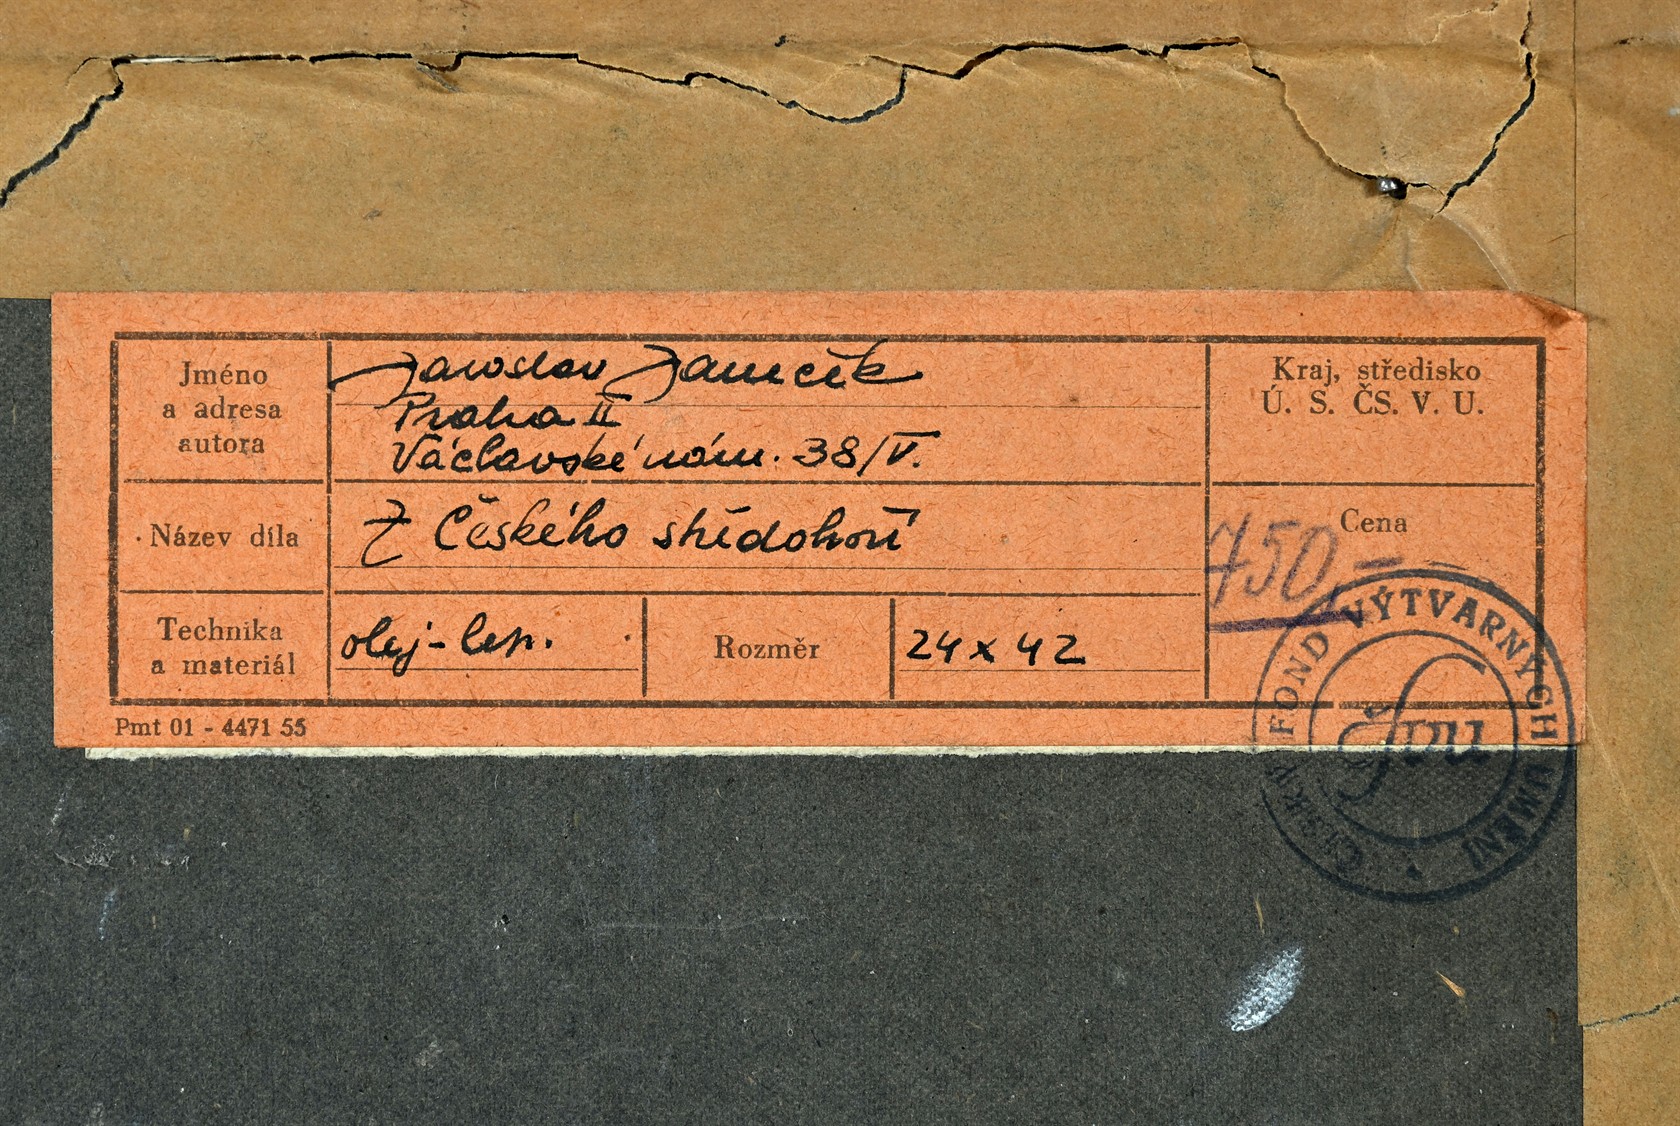 Jméno
a adresa
autora
Jaroslav Jameček
Praha II
Václavské nám. 38/V.
Kraj, středisko
Ú. S. ČS. V. U.
Název díla
Z Českého středohoří
Cena
750,-
Technika
a materiál
olej-lep.
Rozměr
24 x 42
Pmt 01 - 4471 55
ČESKÝ FOND VÝTVARNÝCH UMĚNÍ
ČFVU